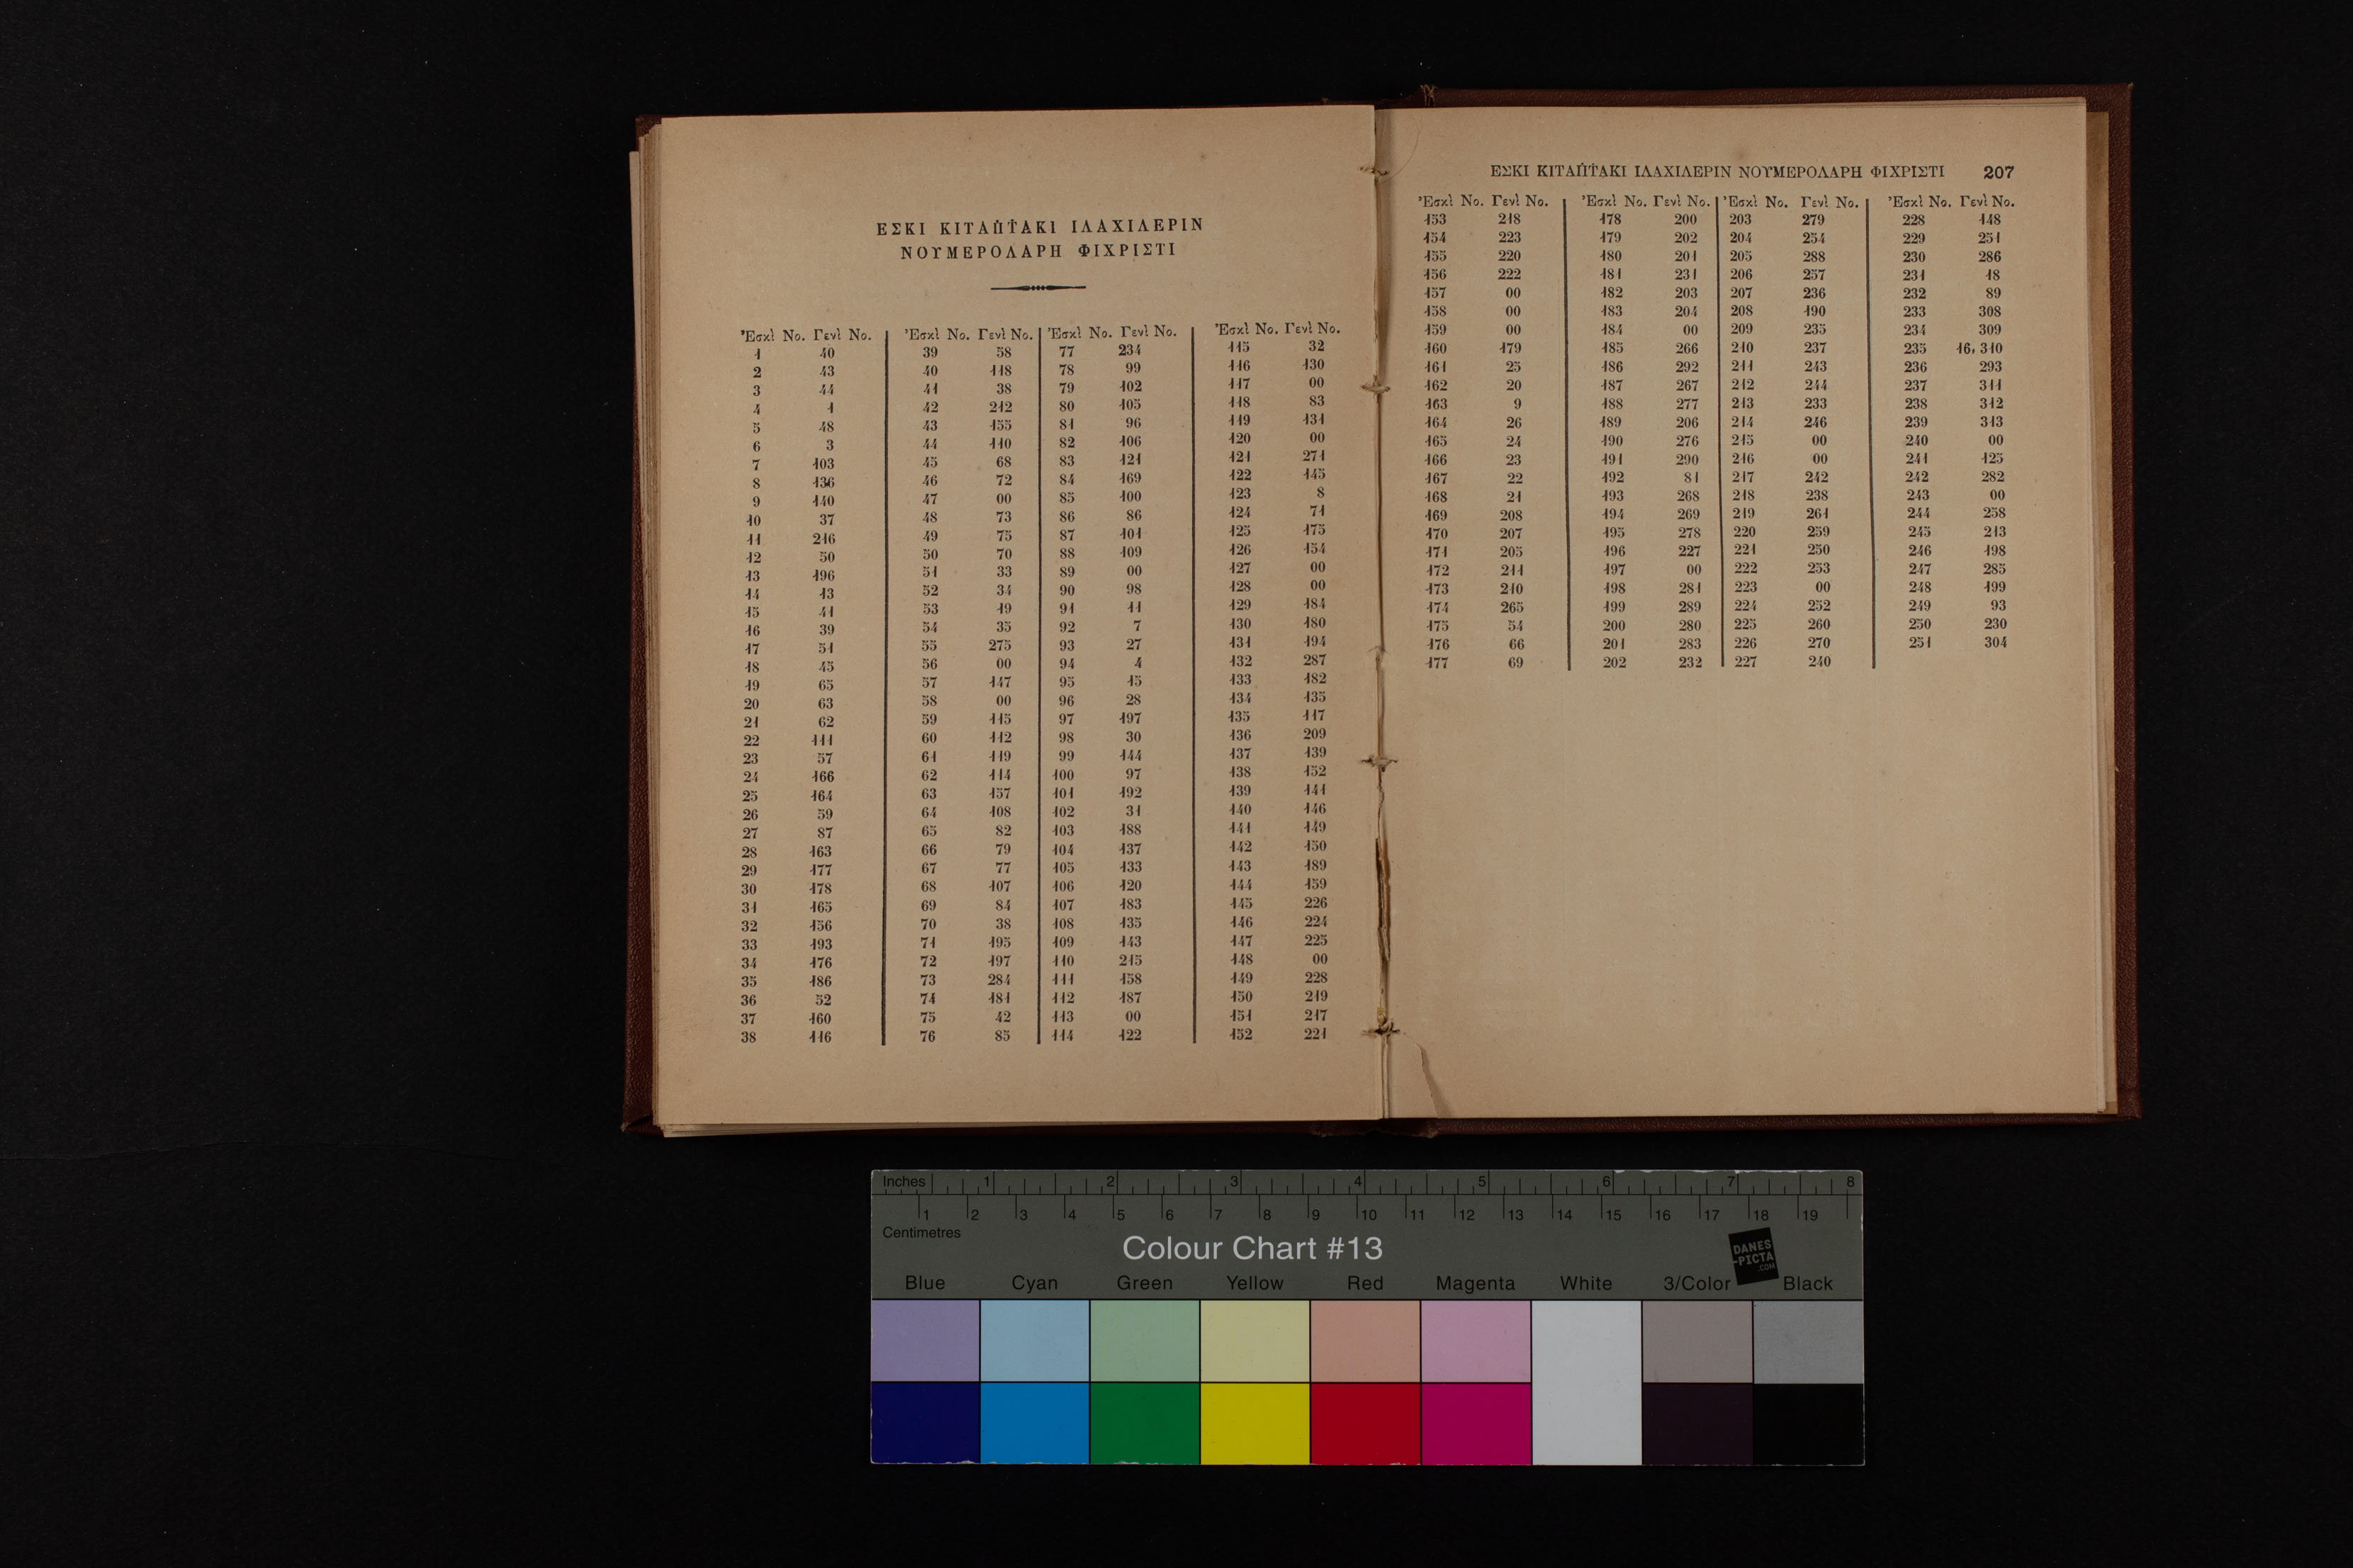 ΕΣΚΙ ΚΙΤΑΠ̇Τ̇ΑΚΙ ΙΛΑΧΙΛΕΡΙΝ
ΝΟΥΜΕΡΟΛΑΡΗ ΦΙΧΡΙΣΤΙ
Ἐσκὶ No. Γενὶ No. Ἐσκὶ No. Γενὶ No. Ἐσκὶ No. Γενὶ No. Ἐσκὶ No. Γενὶ No.
1 40 39 58 77 234 115 32
2 43 40 118 78 99 116 130
3 44 41 38 79 102 117 00
4 1 42 212 80 105 118 83
5 48 43 155 81 96 119 131
6 3 44 110 82 106 120 00
7 103 45 68 83 121 121 271
8 136 46 72 84 169 122 145
9 140 47 00 85 100 123 8
10 37 48 73 86 86 124 71
11 216 49 75 87 101 125 175
12 50 50 70 88 109 126 154
13 196 51 33 89 00 127 00
14 13 52 34 90 98 128 00
15 41 53 19 91 11 129 184
16 39 54 35 92 7 130 180
17 51 55 275 93 27 131 194
18 45 56 00 94 4 132 287
19 65 57 147 95 15 133 182
20 63 58 00 96 28 134 135
21 62 59 115 97 197 135 117
22 111 60 112 98 30 136 209
23 57 61 119 99 144 137 139
24 166 62 114 100 97 138 152
25 164 63 157 101 192 139 141
26 59 64 108 102 31 140 146
27 87 65 82 103 188 141 149
28 163 66 79 104 137 142 150
29 177 67 77 105 133 143 189
30 178 68 107 106 120 144 159
31 165 69 84 107 183 145 226
32 156 70 38 108 135 146 224
33 193 71 195 109 143 147 225
34 176 72 197 110 215 148 00
35 186 73 284 111 158 149 228
36 52 74 181 112 187 150 219
37 160 75 42 113 00 151 217
38 116 76 85 114 122 152 221
ΕΣΚΙ ΚΙΤΑΠ̇Τ̇ΑΚΙ ΙΛΑΧΙΛΕΡΙΝ ΝΟΥΜΕΡΟΛΑΡΗ ΦΙΧΡΙΣΤΙ 207
Ἐσκὶ No. Γενὶ No. Ἐσκὶ No. Γενὶ No. Ἐσκὶ No. Γενὶ No. Ἐσκὶ No. Γενὶ No.
153 218 178 200 203 279 228 148
154 223 179 202 204 254 229 251
155 220 180 201 205 288 230 286
156 222 181 231 206 257 231 18
157 00 182 203 207 236 232 89
158 00 183 204 208 190 233 308
159 00 184 00 209 235 234 309
160 179 185 266 210 237 235 16, 310
161 25 186 292 211 243 236 293
162 20 187 267 212 244 237 311
163 9 188 277 213 233 238 312
164 26 189 206 214 246 239 313
165 24 190 276 215 00 240 00
166 23 191 290 216 00 241 125
167 22 192 81 217 242 242 282
168 21 193 268 218 238 243 00
169 208 194 269 219 261 244 258
170 207 195 278 220 259 245 213
171 205 196 227 221 250 246 198
172 211 197 00 222 253 247 285
173 210 198 281 223 00 248 199
174 265 199 289 224 252 249 93
175 54 200 280 225 260 250 230
176 66 201 283 226 270 251 304
177 69 202 232 227 240
Inches 1 2 3 4 5 6 7 8
1 2 3 4 5 6 7 8 9 10 11 12 13 14 15 16 17 18 19
Centimetres
Colour Chart #13
DANES
-PICTA
.COM
Blue Cyan Green Yellow Red Magenta White 3/Color Black